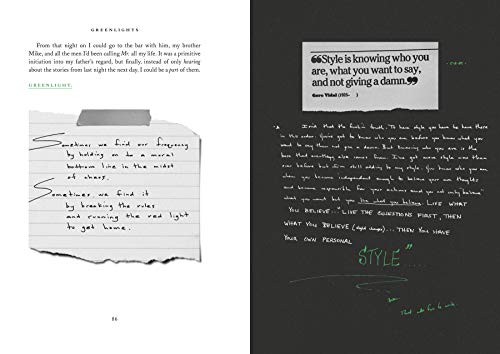 GREENLIGHTS
From that night on I could go to the bar with him, my brother
Mike, and all the men I'd been calling Mr. all my life. It was a primitive
initiation into my father's regard, but finally, instead of only hearing
about the stories from last night the next day, I could be a part of them.
GREENLIGHT.
Sometimes we find our frequency
by holding on to a moral
bottom line in the midst
of chaos.
Sometimes, we find it
by breaking the rules
and running the red light
to get home.
86
“Style is knowing who you
are, what you want to say,
and not giving a damn.”
Gore Vidal (1925- )
Ain't that the truth. To have style you have to have these
in this order. You've got to know who you are before you know what you
want to say then not give a damn. But knowing who you are is the
base that everything else comes from. I've got more style now than
ever before but I'm still adding to my style. You know who you are
when you become independent enough to believe your own thoughts
and become responsible for your actions and you not only believe
what you want but you live what you believe. LIVE WHAT
YOU BELIEVE... "LIVE THE QUESTIONS FIRST, THEN
WHAT YOU BELIEVE ... THEN YOU HAVE
YOUR OWN PERSONAL
STYLE"